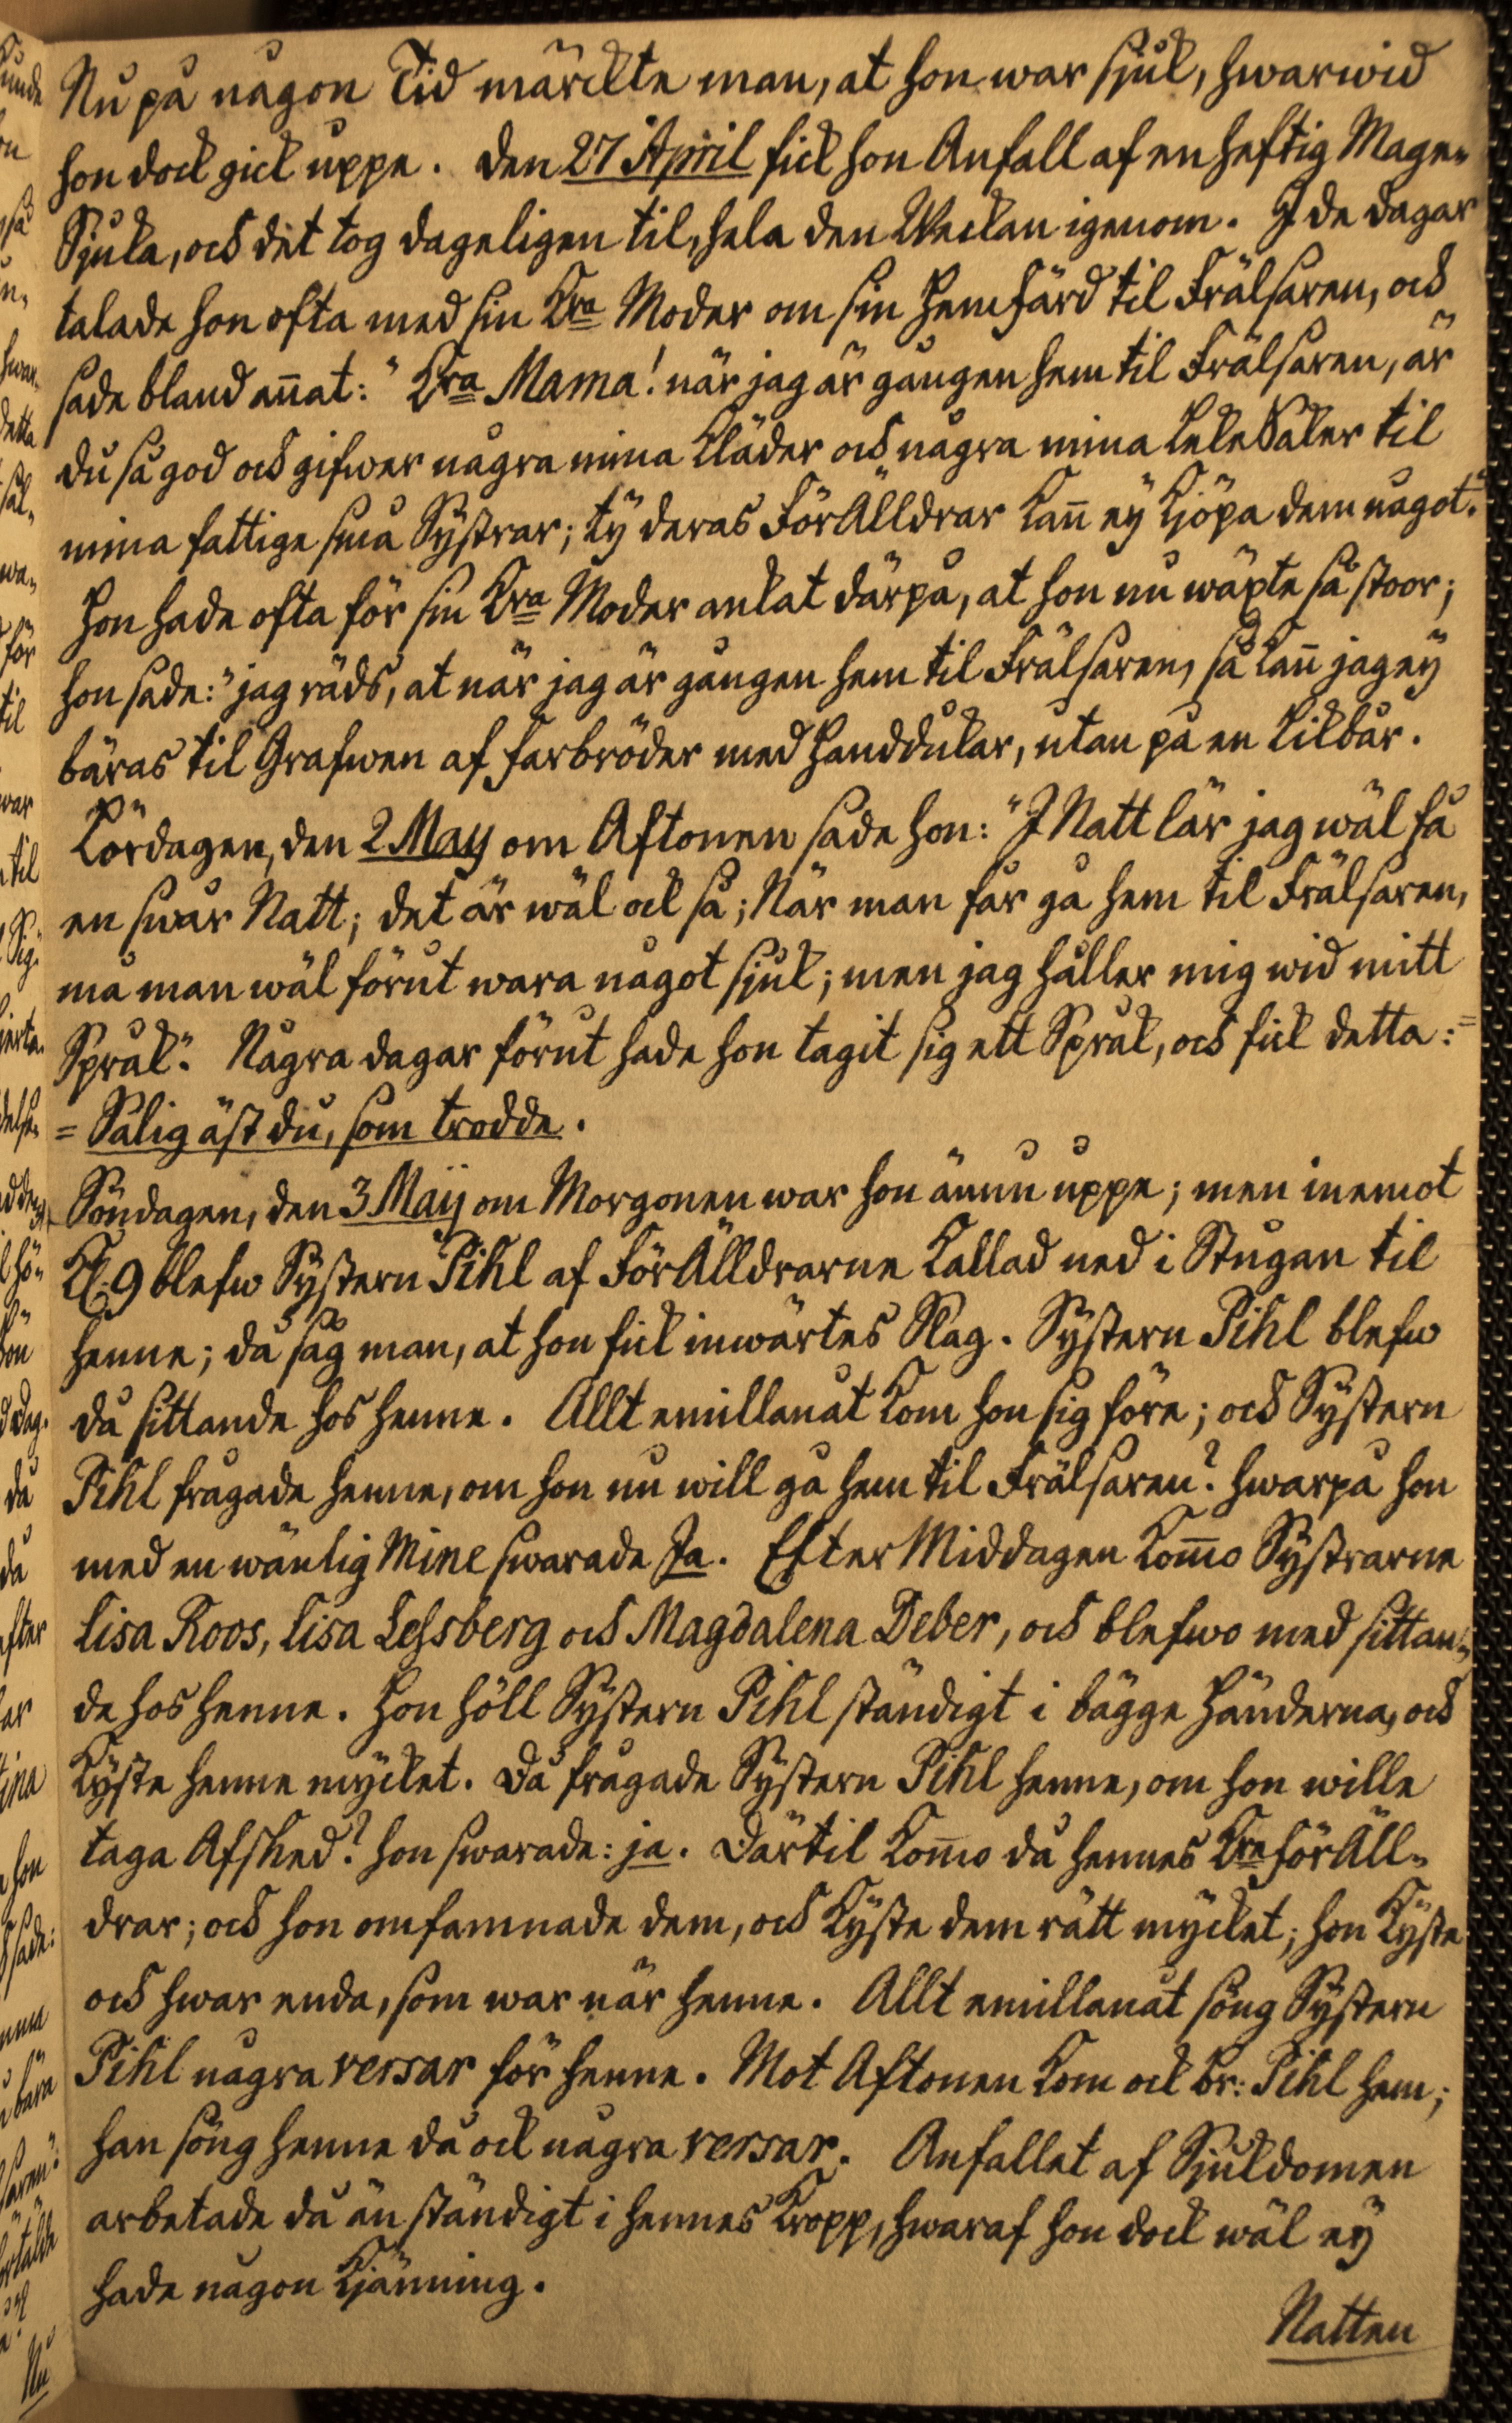 Nu på någon Tid märckte man, at hon war sjuk, hwarwid
hon dock gick uppe. den 27 April fick hon Anfall af en heftig Mage-
Sjuka, och det tog dageligen til, hela den Weckan igenom. I de dagar
talade hon ofta med sin Kra Moder om sin Hemfärd til Frälsaren, och
sade bland annat: "Kra Mama! när jag är gången hem til Frälsaren, är
du så god och gifwer några mina Kläder och några mina LekeSaker til
mina fattige små Systrar; ty deras FörÄlldrar Kan̄ ey Kjöpa dem något."
Hon hade ofta för sin Kra Moder ankat därpå, at hon nu wäxte så stoor;
hon sade: "jag räds, at när jag är gången hem til Frälsaren, så kan̄ jag ey
bäras til Grafwen af farbröder med Handdukar, utan på en Likbår.
Lördagen, den 2 May om Aftonen sade hon: "I Natt lär jag wäl få
en swår Natt; det är wäl ock så; När man får gå hem til Frälsaren,
må man wäl förut wara något sjuk; men jag håller mig wid mitt
Språk". Några dagar förut hade hon tagit sig ett Språk, och fick detta:=
= Salig äst du, som trodde.
Söndagen, den 3 Maij om Morgonen war hon ännu uppe; men inemot
Kl. 9 blefw Systern Pihl af FörÄlldrarne Kallad ned i Stugan til
henne; då såg man, at hon fick inwärtes Slag. Systern Pihl blefw
då sittande hos henne. Allt emillanåt Kom hon sig före; och Systern
Pihl frågade henne, om hon nu will gå hem til Frälsaren? hwarpå hon
med en wänlig Mine swarade Ja. Efter Middagen Kom̄o Systrarne
Lisa Roos, Lisa Lessberg och Magdalena Deber, och blefwo med sittan-
de hos henne. Hon höll Systern Pihl ständigt i bägge Händerna, och
Kyste henne mycket. Då frågade Systern Pihl henne, om hon wille
taga Afsked? hon swarade: ja. Därtil Kom̄o då hennes Kre FörÄll-
drar; och hon omfamnade dem, och Kyste dem rätt mycket; hon Kyste
och hwar enda, som war när henne. Allt emillanåt söng Systern
Pihl några versar för henne. Mot Aftonen Kom ock br: Pihl hem;
han söng henne då ock några versar. Anfallet af Sjukdomen
arbetade då än ständigt i hennes Kropp, hwaraf hon dock wäl ey
hade någon Kjänning.
Natten